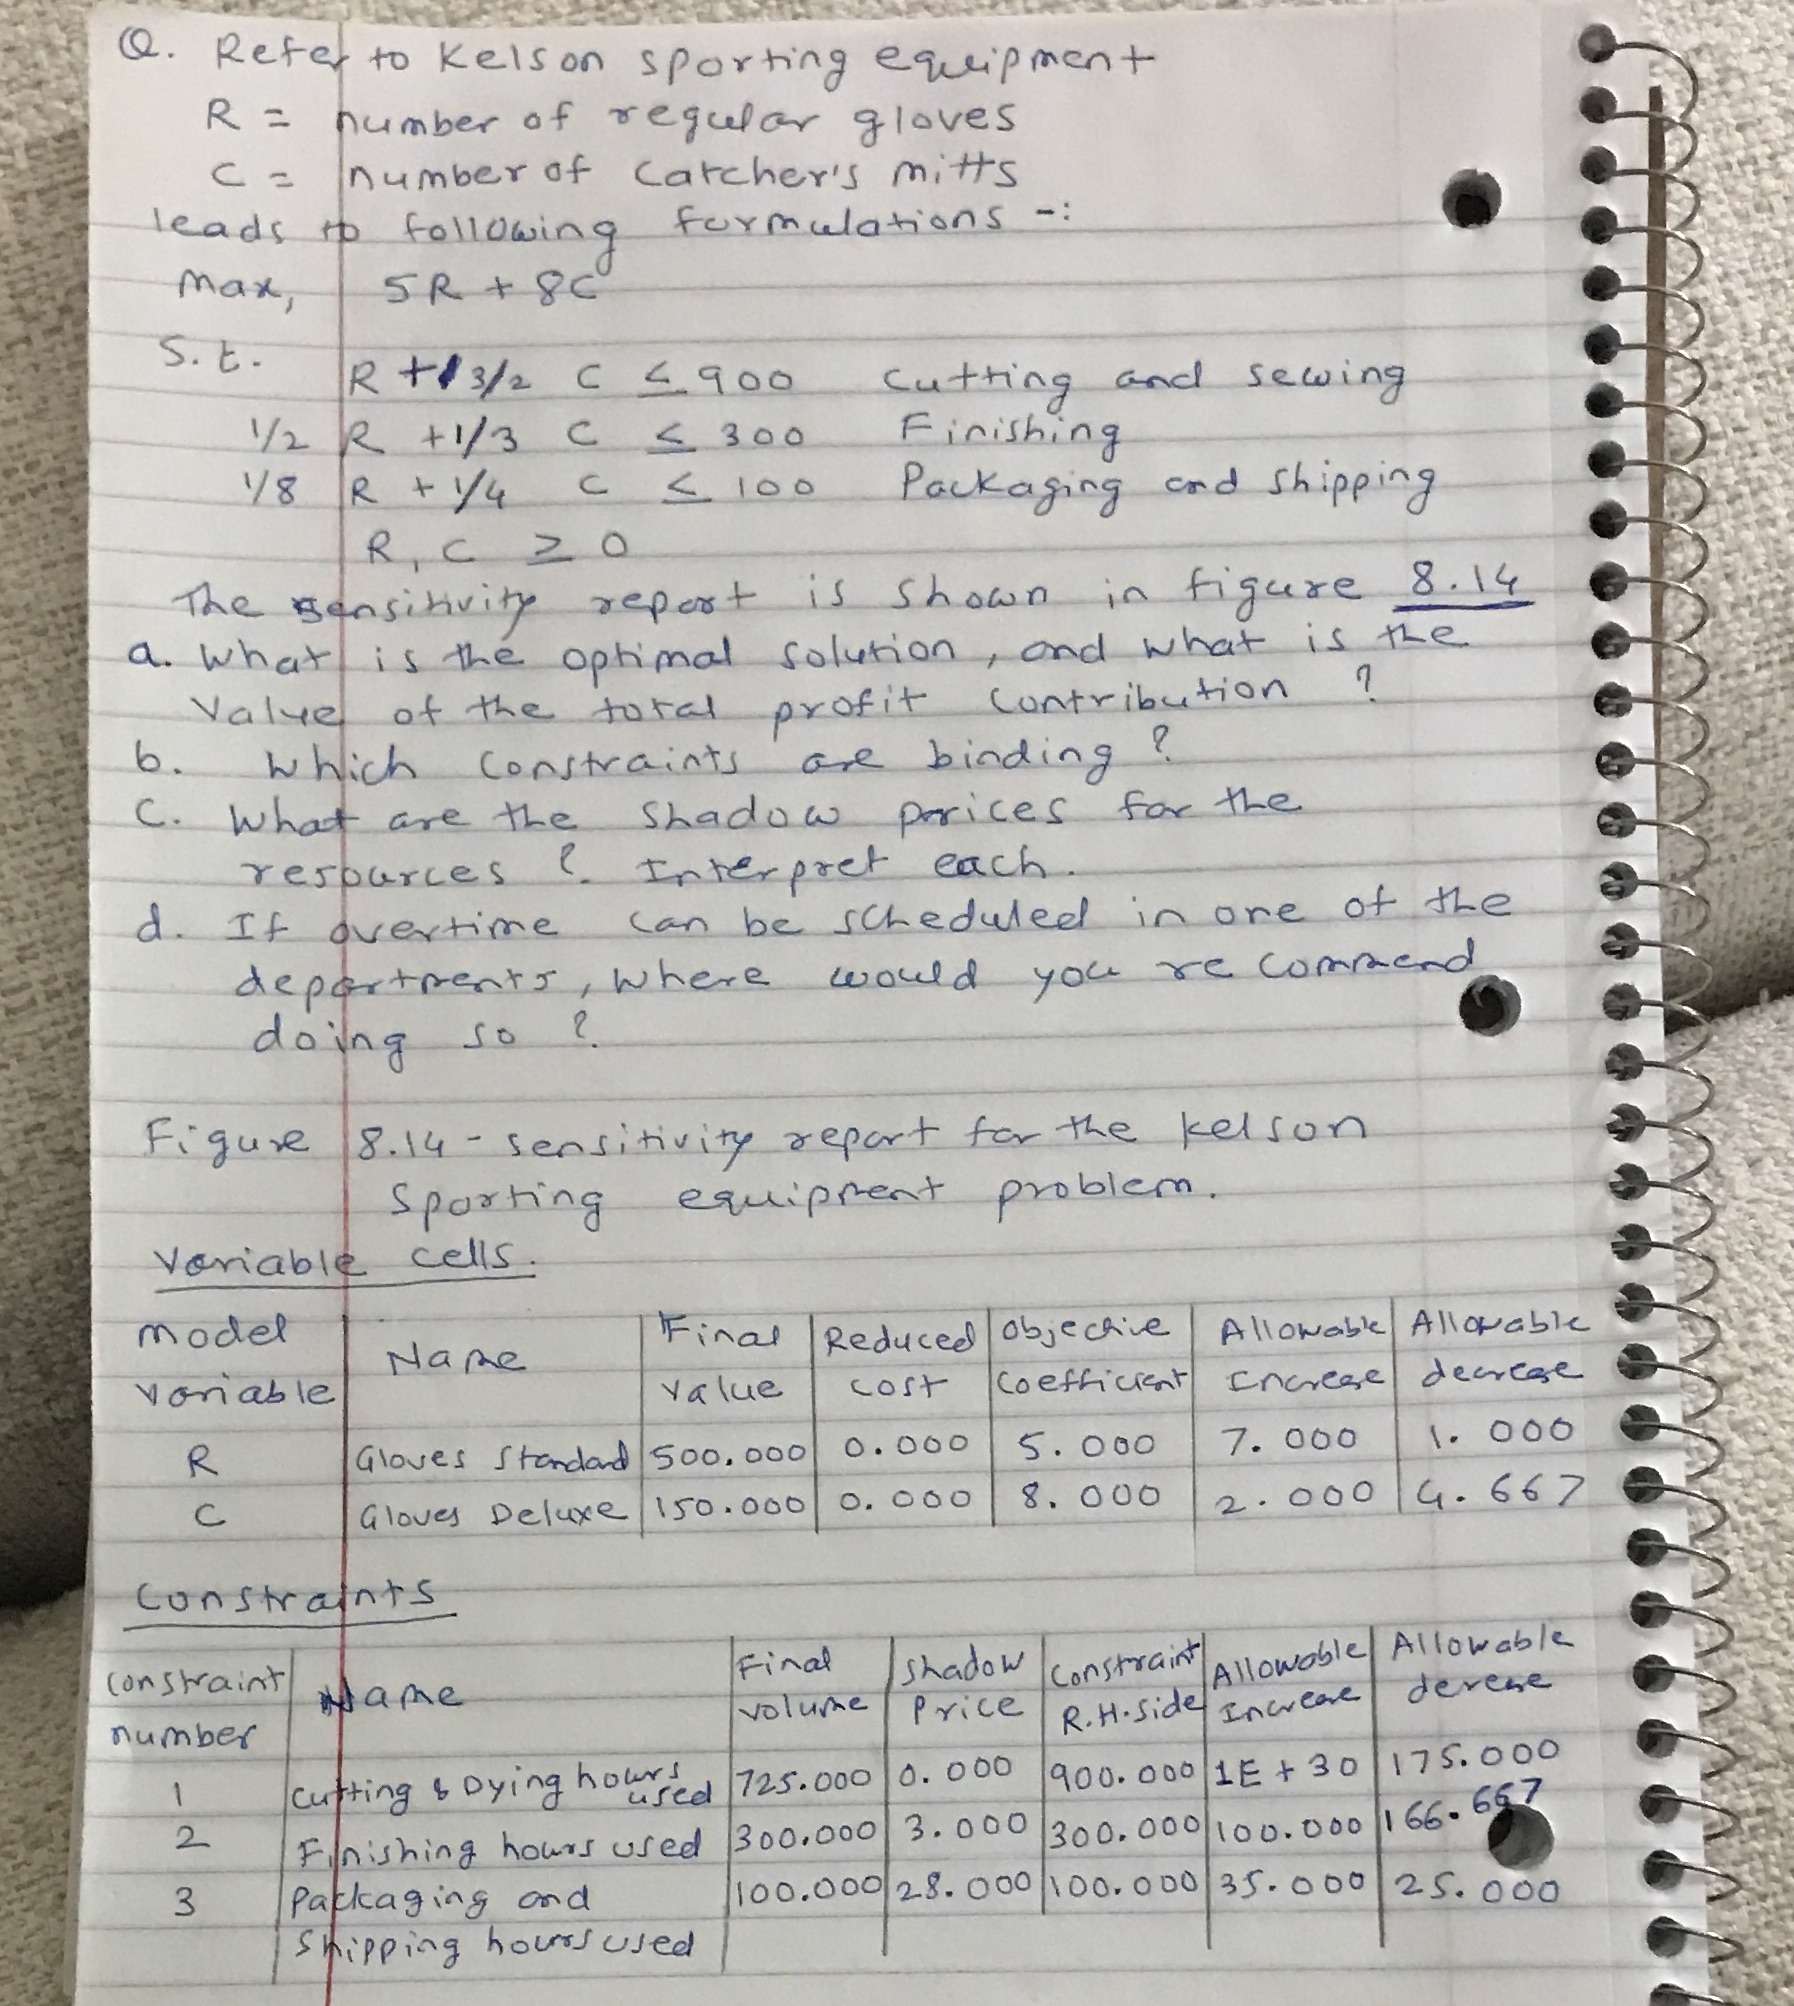 Q. Refer to Kelson sporting equipment
R = number of regular gloves
C = number of Catcher's mitts
leads to following formulations -:
Max, 5R + 8C
S.t.
R + 3/2 C ≤ 900 Cutting and sewing
1/2 R + 1/3 C ≤ 300 Finishing
1/8 R + 1/4 C ≤ 100 Packaging and shipping
R, C ≥ 0
The sensitivity report is shown in figure 8.14
a. What is the optimal solution, and what is the
Value of the total profit contribution ?
b. Which constraints are binding ?
C. What are the shadow prices for the
resources ? Interpret each.
d. If overtime can be scheduled in one of the
departments, where would you recommend
doing so ?
Figure 8.14 - sensitivity report for the kelson
Sporting equipment problem.
Variable cells.
Model variable | Name | Final value | Reduced cost | Objective Coefficient | Allowable Increase | Allowable decrease
R | Gloves Standard | 500.000 | 0.000 | 5.000 | 7.000 | 1.000
C | Gloves Deluxe | 150.000 | 0.000 | 8.000 | 2.000 | 4.667
Constraints
Constraint number | Name | Final volume | Shadow Price | Constraint R.H.side | Allowable Increase | Allowable derese
1 | Cutting & Dying hours used | 725.000 | 0.000 | 900.000 | 1E + 30 | 175.000
2 | Finishing hours used | 300.000 | 3.000 | 300.000 | 100.000 | 166.667
3 | Packaging and Shipping hours used | 100.000 | 28.000 | 100.000 | 35.000 | 25.000